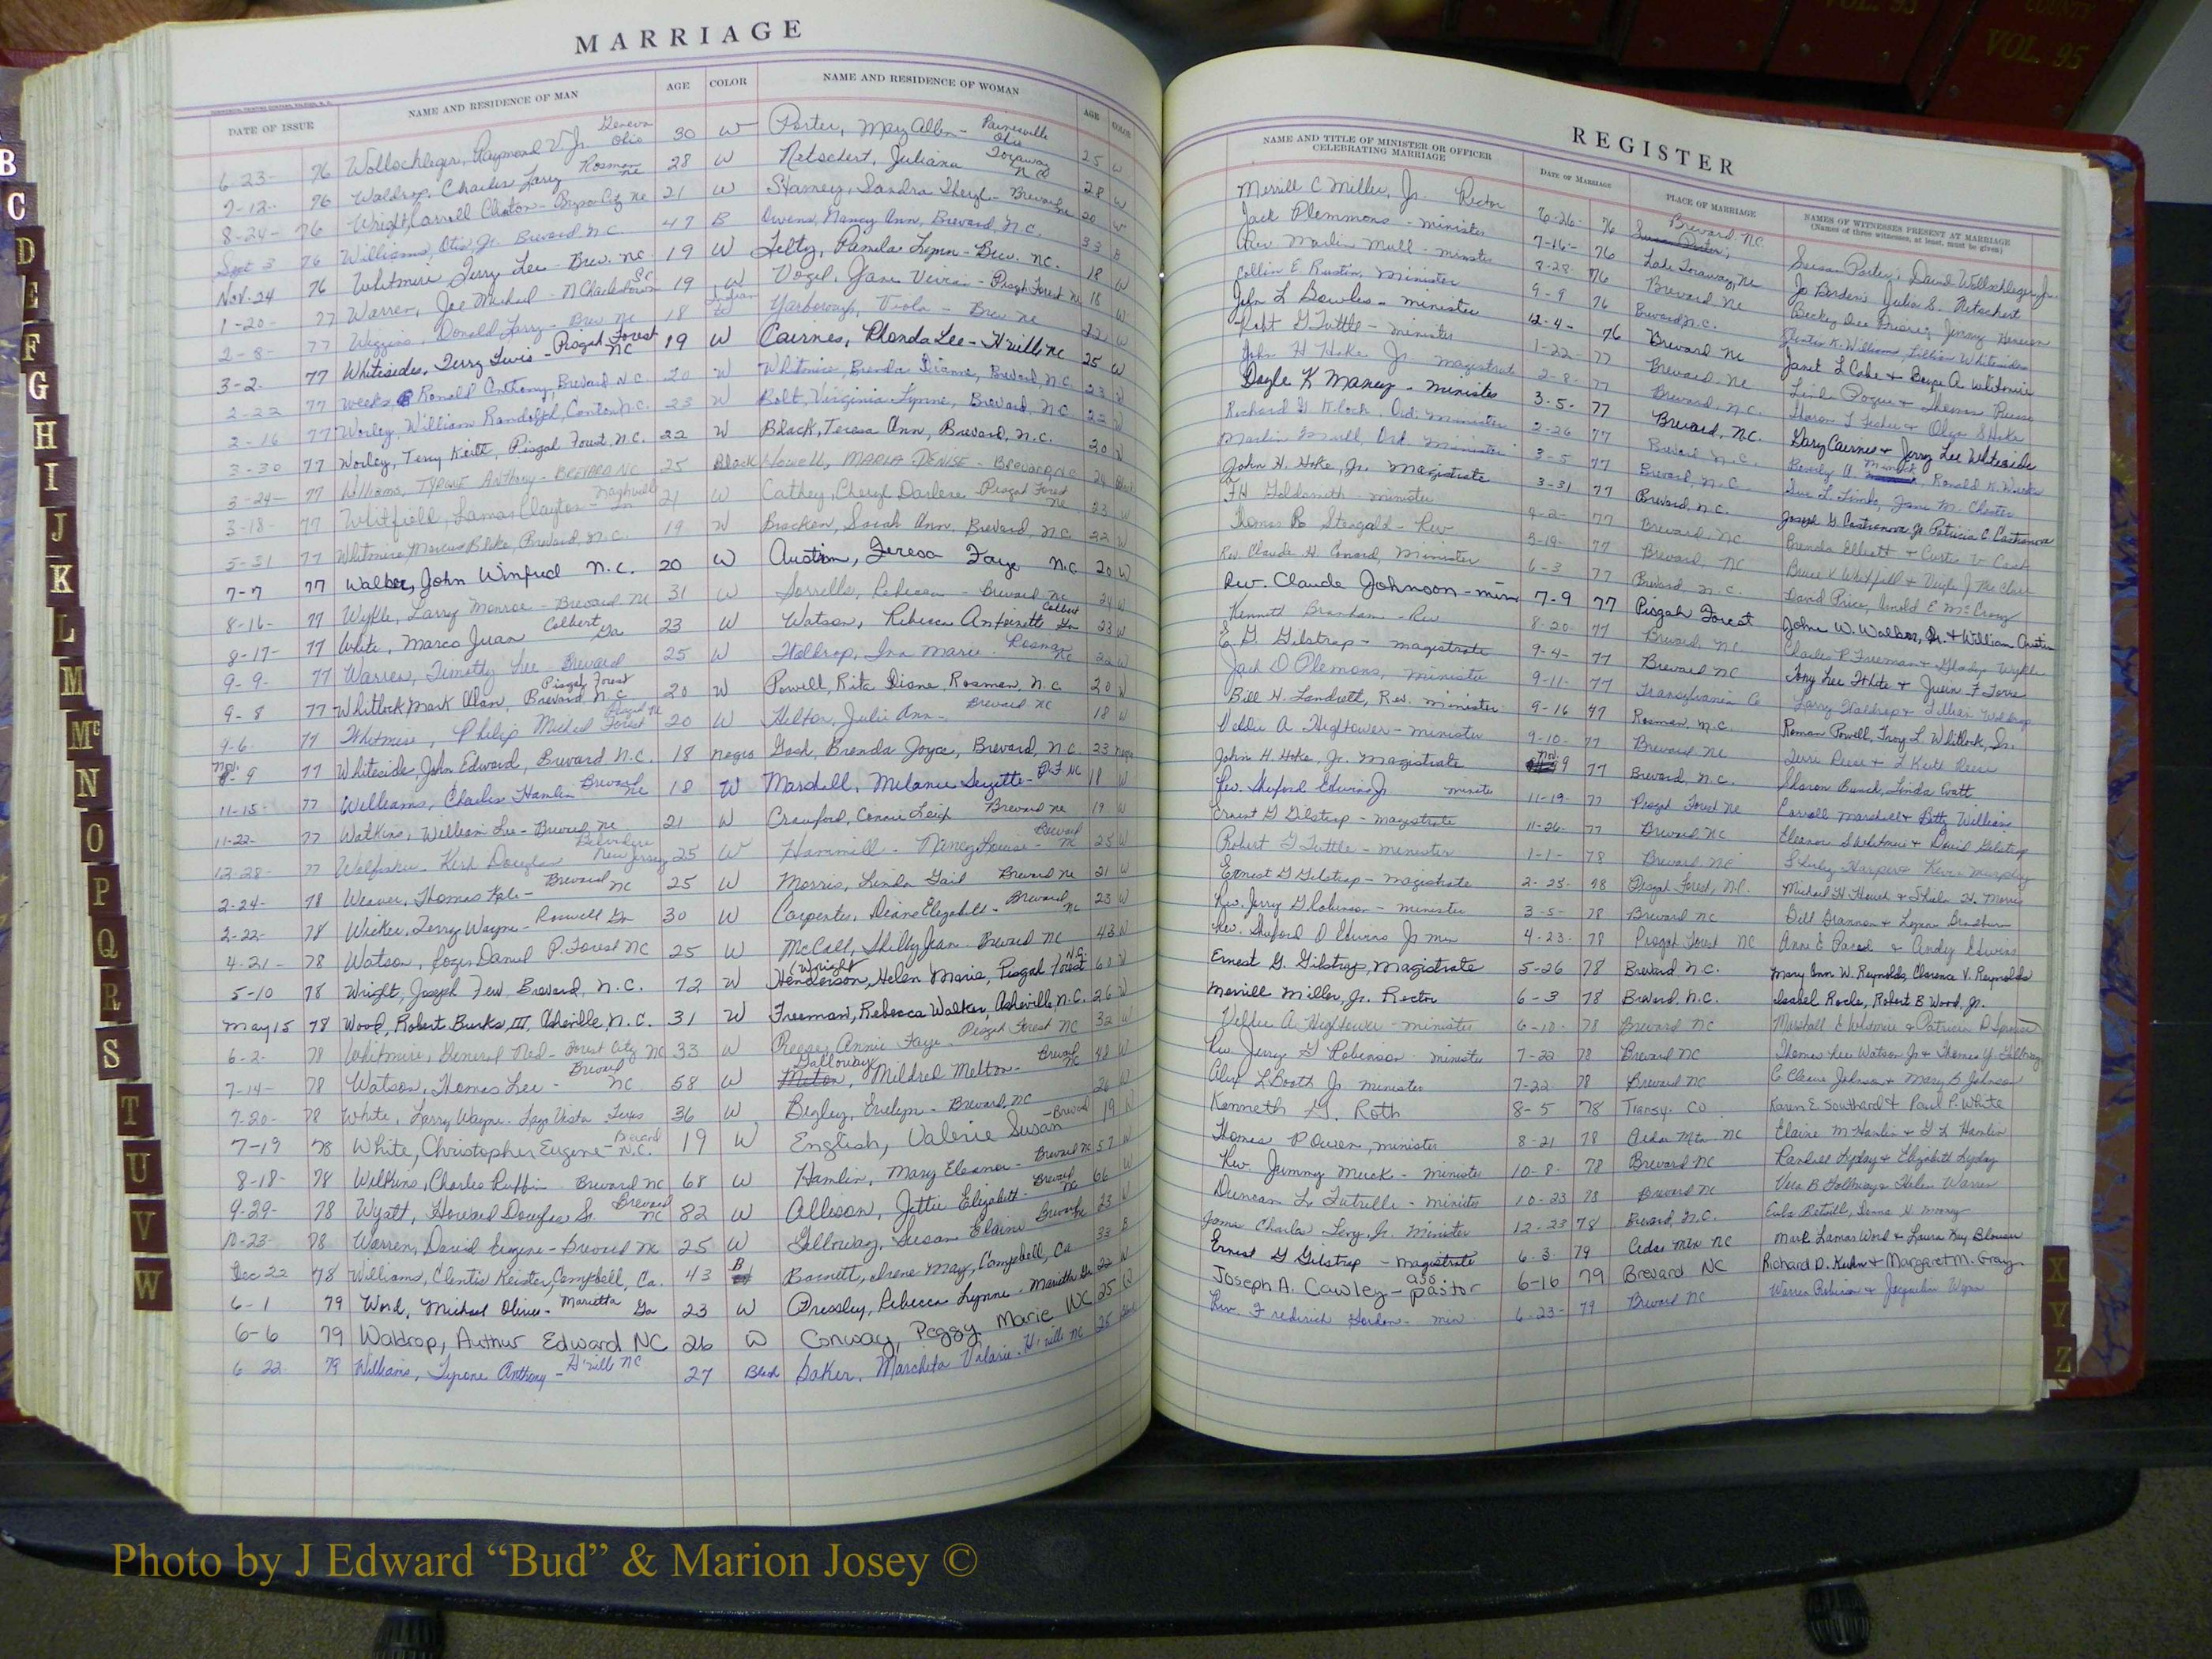 MARRIAGE
DATE OF ISSUE NAME AND RESIDENCE OF MAN AGE COLOR NAME AND RESIDENCE OF WOMAN AGE COLOR
6-23- 76 Wollschleger, Raymond V. Jr. Geneva Ohio 30 W Porter, Mary Allen - Painesville Ohio 25 W
7-12- 76 Waldrop, Charles Larry Rosman NC 28 W Netschert, Juliana Toxaway NC 28 W
8-24- 76 Wright, Carroll Clinton - Bryson City NC 21 W Stamey, Sandra Sheryl - Brevard NC 20 W
Sept 3 76 Williams, Otis Jr. Brevard N.C. 47 B Owens, Nancy Ann, Brevard, N.C. 33 B
Nov. 24 76 Whitmire Terry Lee - Brev. NC. 19 W Feltz, Pamela Lynn - Brev. NC. 18 W
1-20- 77 Warren, Joe Michael - N Charleston SC 19 W Vogel, Jane Veira - Pisgah Forest NC 18 W
2-8- 77 Wiggins, Donald Larry - Brev NC 18 Indian Yarborough, Viola - Brev NC 22
3-2- 77 Whitesides, Terry Lewis - Pisgah Forest NC 19 W Cairnes, Rhonda Lee - H'ville NC 25 W
2-22 77 Weeks, Ronald Anthony, Brevard N.C. 20 W Whitmire, Brenda Diane, Brevard, N.C. 23 W
2-16 77 Worley, William Randolph, Canton N.C. 23 W Bolt, Virginia Lynne, Brevard, N.C. 22 W
3-30 77 Worley, Terry Keith, Pisgah Forest, N.C. 22 W Black, Teresa Ann, Brevard, N.C. 20 W
3-24- 77 Williams, TYRONE Anthony - BREVARD NC 25 Black Howell, MARIA DENISE - Brevard, NC 24 Black
3-18- 77 Whitfield, Lamar Clayton - Nashville Tn 21 W Cathey, Cheryl Darlene Pisgah Forest NC 23 W
5-31 77 Whitmire Marcus Blake, Brevard, N.C. 19 W Bracken, Sarah Ann, Brevard, N.C. 22 W
7-7 77 Walker, John Winfred N.C. 20 W Austin, Teresa Faye N.C 20 W
8-16- 77 Wykle, Larry Monroe - Brevard NC 31 W Sorrells, Rebecca - Brevard NC 24 W
8-17- 77 White, Marco Juan Colbert Ga 23 W Watson, Rebecca Antoinette Colbert Ga 23 W
9-9- 77 Warren, Timothy Lee Brevard 25 W Waldrop, Ina Marie - Rosman NC 22 W
9-8 77 Whitlock Mark Alan, Pisgah Forest Brevard, N.C. 20 W Powell, Rita Diane, Rosman, N.C. 20 W
9-6- 77 Whitmire, Philip Michael Pisgah Forest NC 20 W Helton, Julie Ann - Brevard NC 18 W
Nov. 9 77 Whiteside, John Edward, Brevard N.C. 18 Negro Gash, Brenda Joyce, Brevard, N.C. 23 Negro
11-15- 77 Williams, Charles Hamlin Brevard NC 18 W Marshall, Melanie Suzette - P.F. NC 18 W
11-22- 77 Watkins, William Lee - Brevard NC 21 W Crawford, Connie Leigh Brevard NC 19 W
12-28- 77 Kirk Douglas Belvidere New Jersey 25 W Hammill - Nancy Louise - Brevard NC 25 W
2-24- 78 Weaver, Thomas Kyle - Brevard NC 25 W Morris, Linda Gail Brevard NC 21 W
2-22- 78 Wicker, Terry Wayne - Roswell Ga 30 W Carpenter, Diane Elizabeth - Brevard NC 23 W
4-21- 78 Watson, Roger Daniel P. Forest NC 25 W McCall, Shilly Jean - Brevard NC 43 W
5-10 78 Wright, Joseph Few Brevard, N.C. 72 W Henderson (Wright), Helen Marie, Pisgah Forest N.C. 61 W
May 15 78 Wood, Robert Burks, III, Asheville, N.C. 31 W Freeman, Rebecca Walker, Asheville, N.C. 26 W
6-2- 78 Whitmire, General Ned - Forest City NC 33 W Reese, Annie Faye - Pisgah Forest NC 32 W
7-14- 78 Watson, Thomas Lee - Brevard NC. 58 W Galloway, Mildred Melton - Brevard NC 48 W
7-20- 78 White, Larry Wayne - Lago Vista Texas 36 W Begley, Evelyn - Brevard, NC 26 W
7-19 78 White, Christopher Eugene - Brevard N.C. 19 W English, Valerie Susan - Brevard 19 W
8-18- 78 Wilkins, Charles Ruffin Brevard NC 68 W Hamlin, Mary Eleanor - Brevard NC 57 W
9-29- 78 Wyatt, Howard Douglas Sr. Brevard NC 82 W Allison, Jettie Elizabeth - Brevard NC 66 W
10-23- 78 Warren, David Eugene - Brevard NC 25 W Galloway, Susan Elaine Brevard NC 23 W
Dec 22 78 Williams, Clentis Keister, Campbell, Ca. 43 B Barnett, Irene May, Campbell, Ca 33 B
6-1 79 Word, Michael Oliver - Marietta Ga 23 W Pressley, Rebecca Lynne - Marietta Ga 22 W
6-6 79 Waldrop, Authur Edward NC 26 W Conway, Peggy Marie NC 25 W
6 22 79 Williams, Tyrone Anthony - H'ville NC 27 Black Baker, Marcheta Valarie - H'ville NC 25 Black
REGISTER
NAME AND TITLE OF MINISTER OR OFFICER CELEBRATING MARRIAGE DATE OF MARRIAGE PLACE OF MARRIAGE NAMES OF WITNESSES PRESENT AT MARRIAGE
(Names of three witnesses, at least, must be given)
Merrill C Miller, Jr. Rector 6-26- 76 Brevard NC. Susan Porter, David Wollschleger, Jr.
Jack Plemmons - minister 7-16- 76 Lake Toxaway, NC Jo Borden, Julia S. Netschert
Rev Marlin Mull - minister 8-28 76 Brevard NC Becky Dee
Collin E Rustin, Minister 9-9 76 Brevard N.C. K. William, Lillian Whitesides
John L Bowles - minister 12-4- 76 Brevard NC Janet L Cabe + Boyce A. Whitmire
Robt G Tuttle - minister 1-22- 77 Brevard NC Linda Pogue + Thomas Reese
John H Hoke Jr magistrate 2-8- 77 Brevard, N.C. Sharon L Fisher + Olga S Hoke
Doyle K Maney - minister 3-5- 77 Brevard, N.C. Gary Cairnes + Jerry Lee Whiteside
Richard G. Kiloch, Ord. Minister 2-26 77 Brevard N.C. Beverly A., Ronald K. Weeks
Marlin Mull, Ord. Minister 3-5 77 Brevard, N.C. Sue L. Limbo, Jane M. Chester
John H. Hoke, Jr. Magistrate 3-31 77 Brevard, N.C. Joseph G. Castranova Jr. Patricia C. Castranova
F H Goldsmith - minister 4-2- 77 Brevard, NC Brenda Elliott + Curtis V Cash
Thomas R Steagald - Rev 3-19- 77 Brevard, NC Bruce K Whitfield +
Rev. Claude H. Conard, Minister 6-3 77 Brevard, N.C. David Price, Arnold E McCrary
Rev. Claude Johnson - min 7-9 77 Pisgah Forest John W. Walker, Sr. + William Austin
Kenneth Branham - Rev 8-20 77 Brevard, NC Charles P. Freeman + Gladys Wykle
E G Gilstrap - magistrate 9-4- 77 Brevard NC Tony Lee White + F Torre
Jack D Plemons, minister 9-11- 77 Transylvania Co Larry Waldrop + Lillian Waldrop
Bill H. Landreth, Rev. minister 9-16 77 Rosman, N.C. Roman Powell, Troy L Whitlock, Sr.
Veldie A. Hightower - minister 9-10- 77 Brevard NC Terri Reese + L Keith Reese
John H. Hoke, Jr. Magistrate Nov. 9 77 Brevard, N.C. Sharon Banch, Linda Watt
Rev. Shuford Edwins Jr minister 11-19- 77 Pisgah Forest NC Carroll Marshall + Betty William
Ernest G Gilstrap - magistrate 11-26- 77 Brevard NC Eleanor S Whitmire + David Gilstrap
Robert G Tuttle - minister 1-1- 78 Brevard NC Shirley Harper + Kevin Murphy
Ernest G Gilstrap - magistrate 2-25- 78 Pisgah Forest, NC. Michael H. + Shila H. Morris
Rev. Jerry G Robinson - minister 3-5- 78 Brevard NC Bill Grannon + Lynn Bradburn
Rev. Shuford D Edwins Jr min 4-23- 78 Pisgah Forest NC Ann E Paced + Andy Edwins
Ernest G. Gilstrap, Magistrate 5-26 78 Brevard N.C. Mary Ann W. Reynolds, Clarence V. Reynolds
Merrill Miller, Jr. Rector 6-3 78 Brevard, N.C. Isabel Rocle, Robert B Wood, Jr.
Veldie A Hightower - minister 6-10- 78 Brevard NC Marshall E Whitmire + Patricia D Sprouse
Rev Jerry G Robinson minister 7-22 78 Brevard NC Thomas Lee Watson Jr + Thomas Y. Galloway
Alex L Booth Jr. minister 7-22 78 Brevard NC C Cleave Johnson + Mary B Johnson
Kenneth G. Roth 8-5 78 Transy. CO. Karen E. Southard + Paul P. White
Thomas P Owen, minister 8-21 78 Cedar Mtn NC Elaine M Hamlin + G L Hamlin
Rev Jimmy Meeck - minister 10-8- 78 Brevard NC Randall Lyday + Elizabeth Lyday
Duncan L Futrelle - minister 10-23 78 Brevard NC Vera B Galloway + Helen Warren
James Charles Levy, Jr. Minister 12-23 78 Brevard, N.C. Eula Betsill, Donna H Money
Ernest G Gilstrap - magistrate 6-3 79 Cedar Mtn NC Mark Lamar Word + Laura Kay Blouson
Joseph A. Cawley - ass pastor 6-16 79 Brevard NC Richard D. Kuhn + Margaret M. Gray
Rev. Frederich Gordon - min 6-23- 79 Brevard NC Warren Robinson + Jacquelin Wynn
B
C
D
E
F
G
H
I
J
K
L
M
Mc
N
O
P
Q
R
S
T
U
V
W
X
Y
Z
VOL. 95
COUNTY
VOL. 95
Photo by J Edward “Bud” & Marion Josey ©